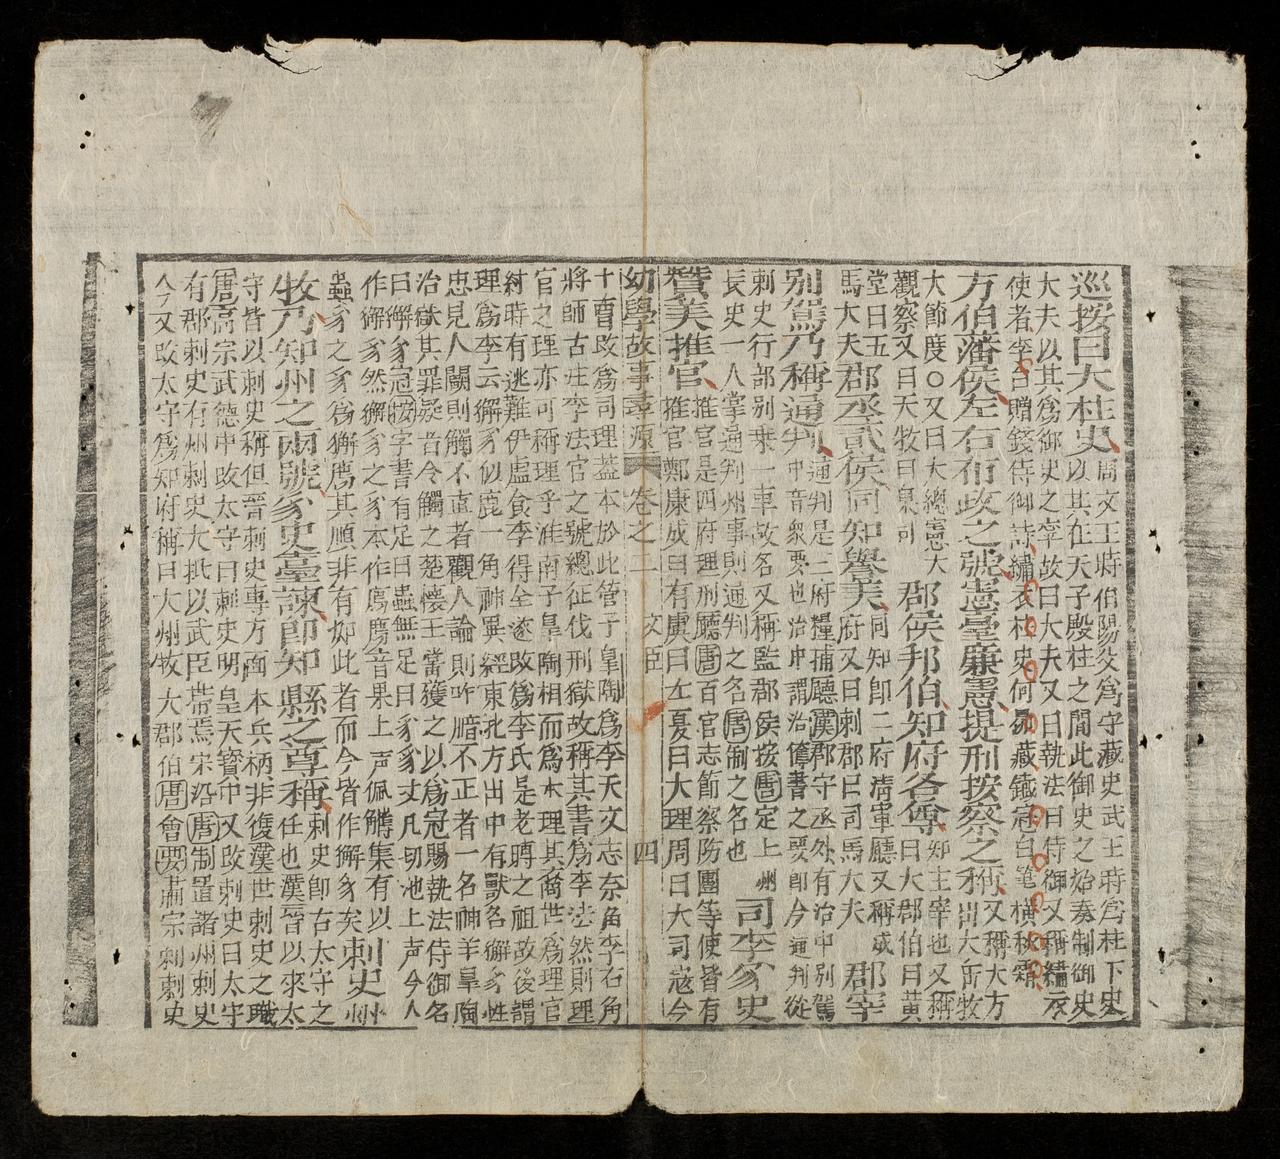 巡按曰大柱史周文王時伯陽父為守藏史武王時為柱下史
大夫以其為御史之宰故曰大夫又曰執法曰侍御又稱繡衣
以其在天子殿柱之間此御史之始秦制御史
使者李白贈錢侍御詩繡衣柱史何昂藏鐵冠白筆橫秋霜
方伯藩侯左右布政之號憲臺廉憲提刑按察之稱又稱大方
出大岳牧
大節度○又曰大總憲大
觀察又曰天牧曰臬司
郡侯邦伯知府各尊知主宰也又稱
曰大郡伯曰黃
堂曰五
馬大夫
郡丞貳侯同知譽美同知即二府清軍廳又稱貳
府又曰刺郡曰司馬大夫
郡宰
別駕乃稱通判通判是三府糧捕廳漢郡守丞外有治中別駕
中音衆要也治中謂治簿書之要即今通判從
刺史行部別乘一車故名又稱監郡侯按唐定上州
長史一人掌通判州事則通判之名唐制之名也
司李豸史
贊美推官推官是四府理刑廳唐百官志節察防團等使皆有
推官鄭康成曰有虞曰士夏曰大理周曰大司寇今
幼學故事尋源 卷之二 文臣 四
十曹改為司理蓋本於此管子皇陶為李天文志奈角李右角
將師古註李法官之號總征伐刑獄故稱其書為李法然則理
官之理亦可稱理乎淮南子皐陶相而為木理其裔世為理官
紂時有逃難伊虛食李得全遂改為李氏是老聃之祖故後謂
理為李云獬豸似鹿一角神異經東北方出中有獸名獬豸性
忠見人鬪則觸不直者觀人論則咋䶢不正者一名神羊皐陶
治獄其罪疑者令觸之楚懷王當獲之以為冠賜執法侍御名
曰獬豸冠按字書有足曰蟲無足曰豸豸丈凡切池上声今人
作獬豸然獬豸之豸本作廌廌音果上声佩觿集有以
蟲豸之豸為獬廌其順非有如此者而今皆作獬豸矣
刺史州
牧乃知州之兩號豸史臺諫即知縣之尊稱刺史即古太守之
任也漢晉以來太
守皆以刺史稱但晉刺史專方面本兵柄非復漢世刺史之職
唐高宗武德中改太守曰刺史明皇天寶中又改刺史曰太守
有郡刺史有州刺史大抵以武臣帶焉宋沿唐制置諸州刺史
今又改太守為知府稱曰大州牧大郡伯唐會要肅宗刺刺史